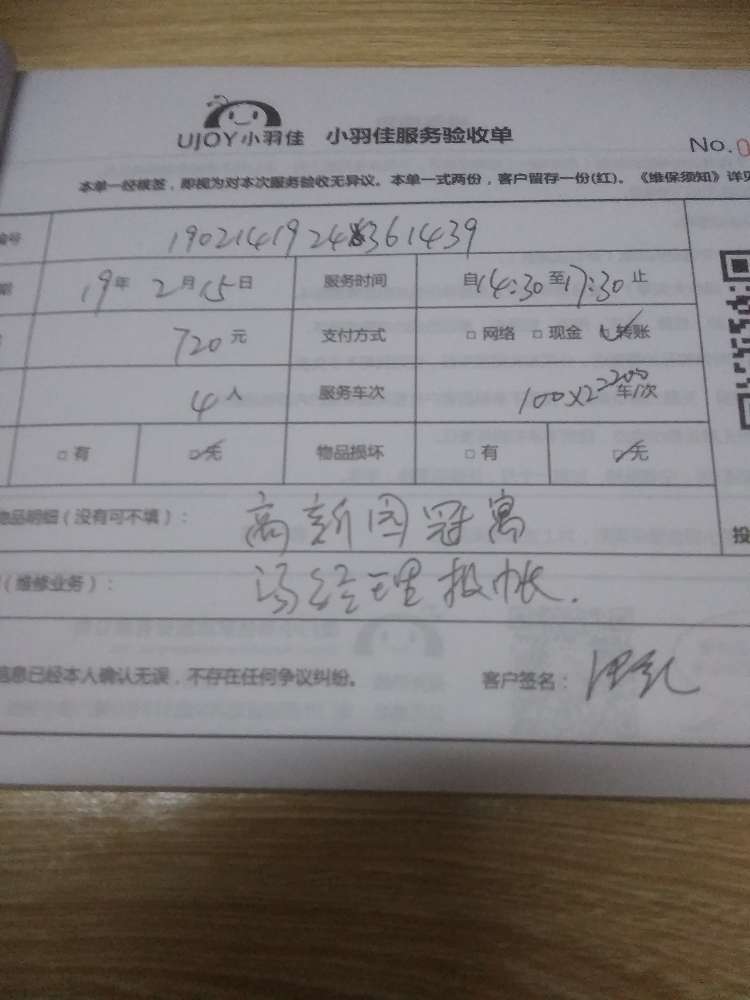 UJOY小羽佳 小羽佳服务验收单
No.0
本单一经核签，即视为对本次服务验收无异议。本单一式两份，客户留存一份(红)。《维保须知》详见
编号 190214192436361439
期 19年 2月15日 服务时间 自14:30至17:30止
720元 支付方式 □网络 □现金 ☑转账
4人 服务车次 100×2=200车/次
□有 ☑无 物品损坏 □有 ☑无
物品明细（没有可不填）： 高新园冠寓
（维修业务）： 冯经理报帐.
信息已经本人确认无误，不存在任何争议纠纷。 客户签名：
投